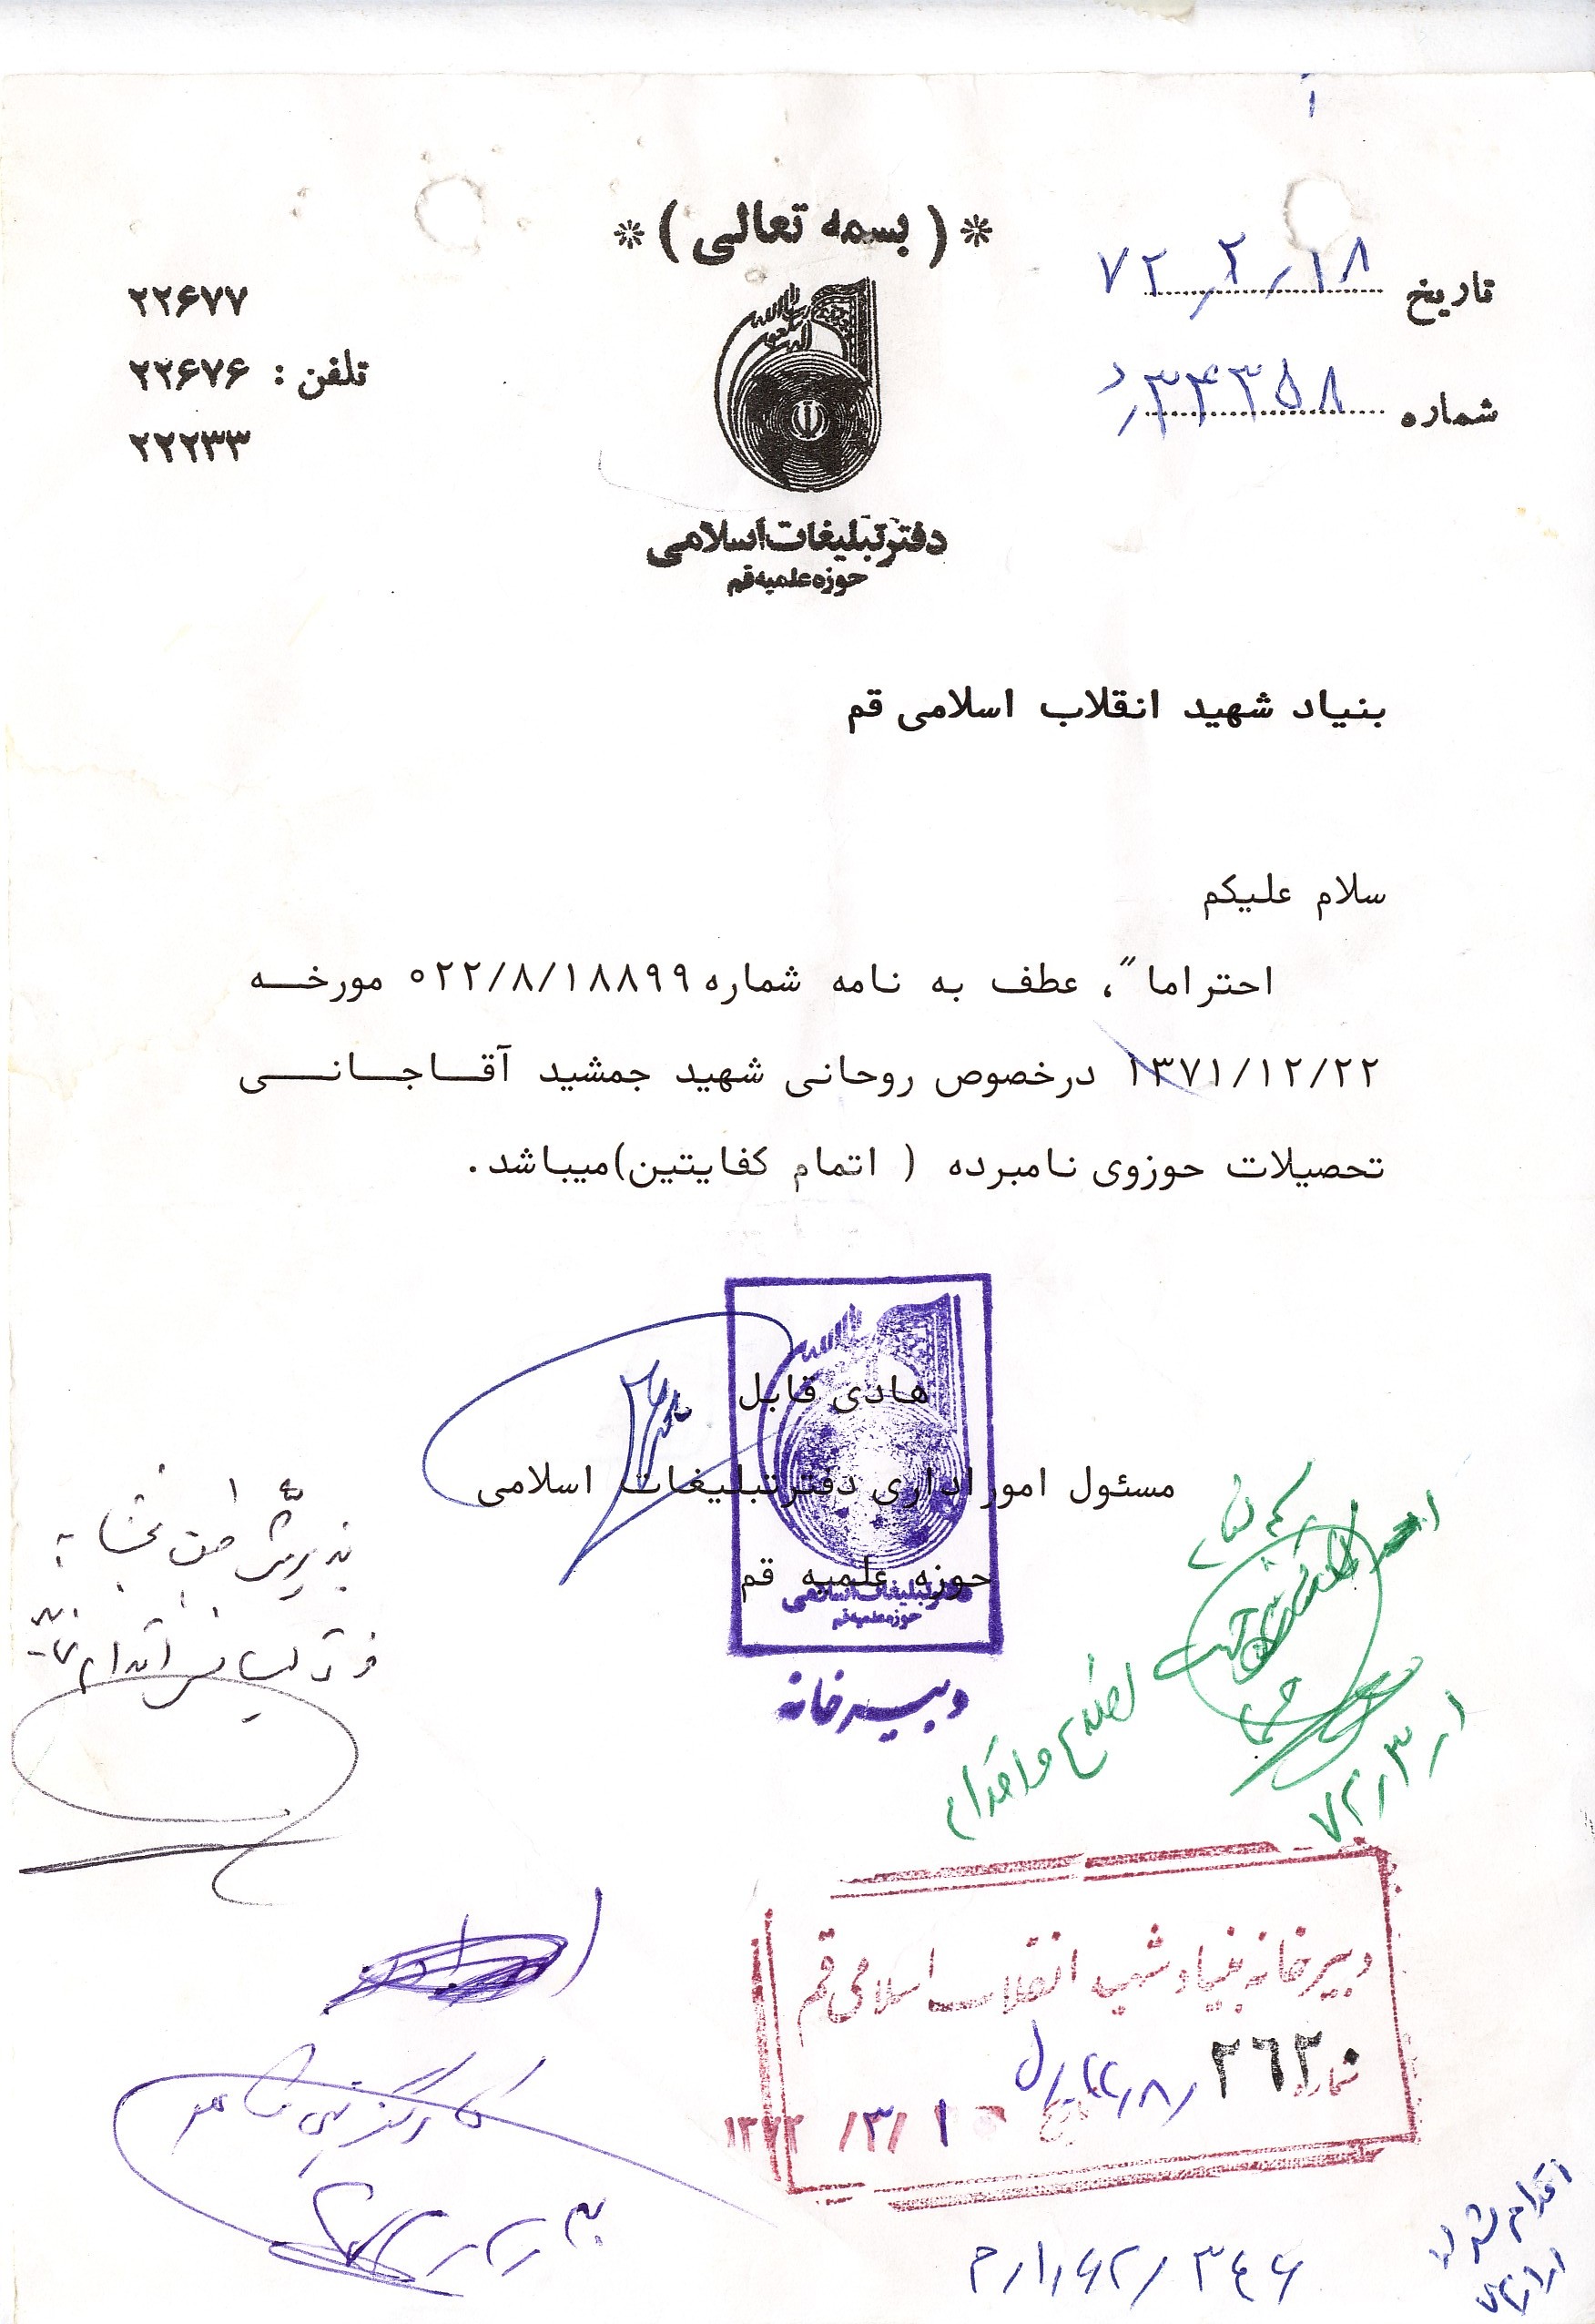 * ( بسمه تعالی ) *
تاریخ ۷۲٫۲٫۱۸
شماره ۳۴۳۵۸٫د
۲۲۶۷۷
تلفن : ۲۲۶۷۶
۲۲۲۳۳
دفتر تبلیغات اسلامی
حوزه علمیه قم
بنیاد شهید انقلاب اسلامی قم
سلام علیکم
احتراما"، عطف به نامه شماره ۰۲۲/۸/۱۸۸۹۹ مورخه
۱۳۷۱/۱۲/۲۲ درخصوص روحانی شهید جمشید آقاجانی
تحصیلات حوزوی نامبرده ( اتمام کفایتین)میباشد.
هادی قابل
مسئول امور اداری دفترتبلیغات اسلامی
حوزه علمیه قم
دفتر تبلیغات اسلامی
حوزه علمیه قم
دبیرخانه
پذیرش
فوق لیسانس اقدام
۷۲٫۳٫۱
دبیرخانه بنیاد شهید انقلاب اسلامی قم
شماره ۲۶۲۰
تاریخ ۱۳۷۲/۳/۱
کارگزینی
اقدام شد